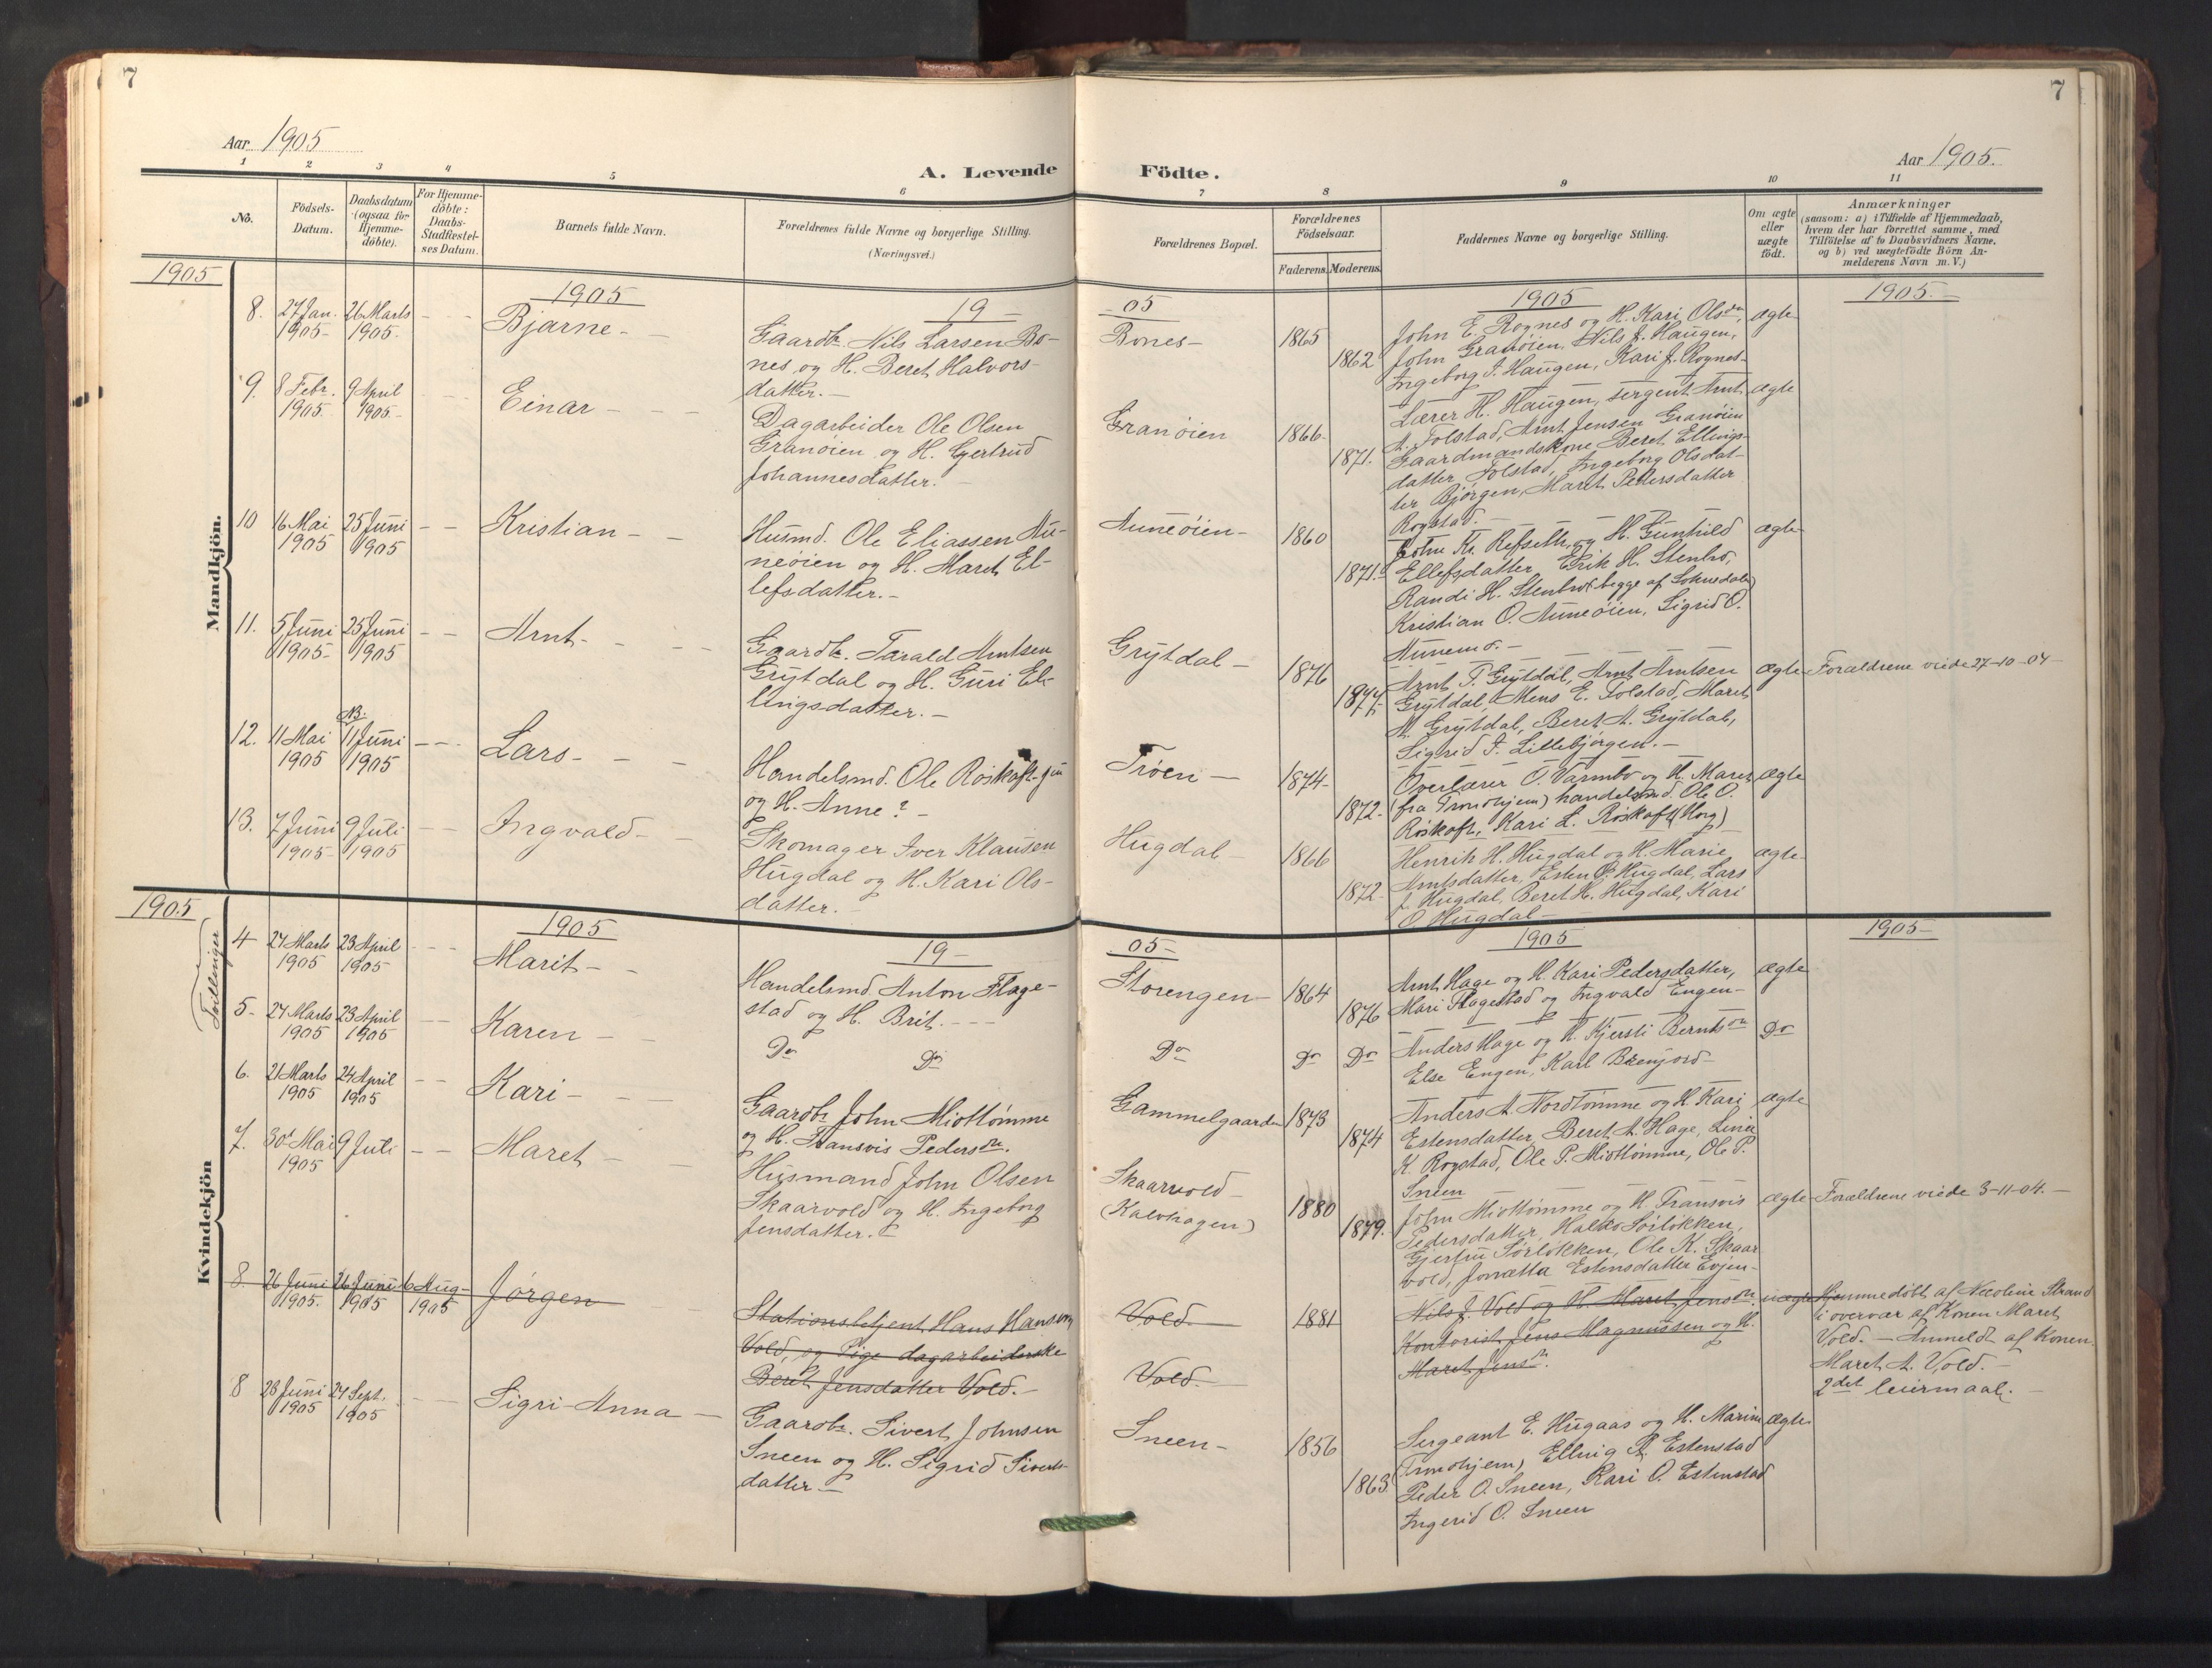 7
7
Aar 1905
Aar 1905.
A. Levende Födte.
1 2 3 4 5 6 7 8 9 10 11
No.
Födsels-
Datum.
Daabsdatum
(ogsaa for
Hjemme-
döbte).
For Hjemme-
döbte:
Daabs-
Stadfæstel-
ses Datum.
Barnets fulde Navn.
Forældrenes fulde Navne og borgerlige Stilling.
(Næringsvei.)
Forældrenes Bopæl.
Forældrenes
Födselsaar.
Faderens. Moderens.
Faddernes Navne og borgerlige Stilling.
Om ægte
eller
uægte
födt.
Anmærkninger
(saasom: a) i Tilfælde af Hjemmedaab,
hvem der har forrettet samme, med
Tilföielse af to Daabsvidners Navne.
og b) ved uægtefödte Börn An-
melderens Navn m. V.)
1905
1905
19 - - 05
1905
1905.-
Mandkjön.
8. 27 Jan. 1905- 26 Marts 1905. - - Bjarne -
Gaardbr. Nils Larsen Bo-
nes og H. Beret Halvors-
datter.-
Bones- 1865 1862
John E. Rognes og H. Kari Olsdtr,
John Granöien, Nils J. Haugen,
Ingeborg J. Haugen, Kari J. Rognes-
ægte
9. 8 Febr. 1905- 9 April 1905.- - - Einar - - -
Dagarbeider Ole Olsen
Granöien og H. Gjertrud
Johannesdatter.-
Granöien 1866- 1871.
Lærer H. Haugen, sergent Arnt
A. Folstad, Arnt Jensen Granöien
Gaardmandskone Beret Ellings-
datter Folstad, Ingeborg Olsdat-
ter Bjørgen, Maret Pedersdatter
Rogstad.-
ægte
10 16 Mai 1905 25 Juni 1905 - - Kristian - -
Husmd. Ole Eliassen Au-
neöien og H. Maret El-
lefsdatter.-
Auneöien- 1860 1871.
John Kr. Refseth og H. Gunhild
Ellefsdatter, Erik H. Stenbro,
Randi H. Stenbro (begge af Soknedalen)
Kristian O. Auneöien, Sigrid O.
Aunemo.-
ægte
11. 5 Juni 1905- 25 Juni 1905 - - Arnt - - -
Gaardbr. Tarald Arntsen
Grytdal og H. Guri El-
lingsdatter.-
Grytdal - 1876 1877-
Arnt T. Grytdal, Arnt Arntsen
Grytdal, Mens E. Folstad, Maret
A. Grytdal, Beret A. Grytdal,
Sigrid J. Lillebjørgen.-
ægte Forældrene viede 27-10-04-
NB.
12. 11 Mai 1905 11 Juni 1905 - - Lars - - -
Handelsmd. Ole Røskaft jun
og H. Anne ? -
Trøen - 1874- 1872-
Overlærer O. Varmbo og H. Maret
(fra Trondhjem) handelsmd. Ole O.
Røskaft, Kari L. Røskaft (Horg)
ægte
13. 7 Juni 1905- 9 Juli 1905 - - Ingvald - -
Skomager Iver Klausen
Hugdal og H. Kari Ols-
datter.-
Hugdal - 1866 1872-
Henrik H. Hugdal og H. Marie
Arntsdatter, Esten O. Hugdal, Lars
J. Hugdal, Beret H. Hugdal, Kari
O. Hugdal-
ægte
1905
1905
19 - 05-
1905
1905-
Kvindekjön
Tvillinger
4 27 Marts 1905 23 April 1905 - - Marit - -
Handelsmd. Anton Flage-
stad og H. Brit. - - -
Storengen- 1864 1876
Arnt Hage og H. Kari Pedersdatter,
Mari Flagestad og Ingvald Engen-
ægte
5- 27 Marts 1905 23 April 1905 - - Karen - -
Do Do
Do Do Do
Anders Hage og H. Kjersti Berntsdtr
Else Engen, Karl Brenjord-
Do
6. 21 Marts 1905 24 April 1905 - - Kari - - -
Gaardbr John Midttømme
og H. Fransvis Pedersdtr.
Gammelgaarden 1873 1874
Anders A. Nordtømme og H. Kari
Estensdatter, Beret A. Hage, Linie
K. Rogstad, Ole P. Midttømme, Ole P.
Sneen
ægte
7. 30d Mai 1905 9 Juli - - Maret - -
Husmand John Olsen
Skaarvold og H. Ingeborg
Jensdatter.-
Skaarvold-
(Kalvhagen) 1880 1879.
John Midttømme og H. Fransvis
Pedersdatter, Halvo Sörlökken,
Gjertru Sörlökken, Ole K. Skaar-
vold, Jonetta Estensdatter Evjen-
ægte Forældrene viede 3-11-04.-
8. 26 Juni 1905. 26 Juni 1905 6 Aug- 1905 Jörgen
Stationsbetjent Hans Hansen
Vold, og Pige dagarbeiderske
Beret Jensdatter Vold.-
Vold.
Vold.
1881
Nils J. Vold og H. Maret Jensdtr.
Kontorist Jens Magnussen og H.
Maret Jensdtr.
uægte Hjemmedöbt af Nicoline Strand
i overvær af Konen Maret
Vold.- Anmeldt af Konen
Maret A. Vold.-
2det leiermaal.-
8 23 Juni 1905 24 Sept. 1905 - - Sigri-Anna -
Gaardbr. Sivert Johnsen
Sneen og H. Sigrid Siverts-
datter-
Sneen- 1856 1863.
Sergeant E. Hugaas og H. Marine
(Trondhjem) Elling A. Estenstad
Peder O. Sneen, Kari O. Estenstad
Ingerid O. Sneen
ægte